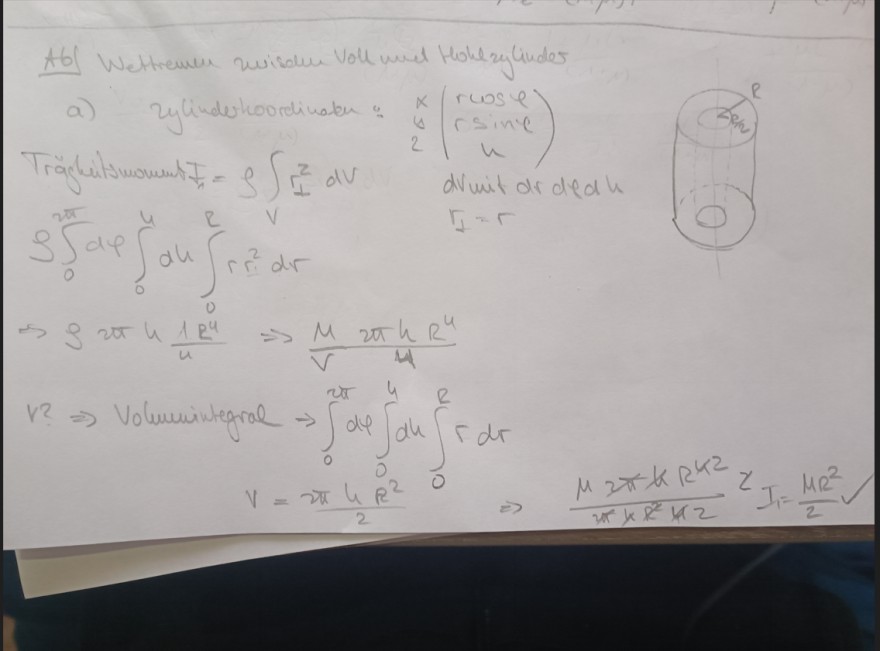 A6) Wettrennen zwischen Voll und Hohlzylinder
a) Zylinderkoordinaten: x y z ( r cos φ r sin φ h )
R
R/2
Trägheitsmoment I₁ = ρ ∫_V r_⊥² dV
dV mit dr dφ dh
r_⊥ = r
ρ ∫₀^2π dφ ∫₀^h dh ∫₀^R r r² dr
=> ρ 2π h 1R⁴/4 => M 2π h R⁴ / V 4
V? => Volumenintegral → ∫₀^2π dφ ∫₀^h dh ∫₀^R r dr
V = 2π h R²/2 => M 2π h R⁴ 2 / 2π h R² 4 2
I₁ = MR²/2 ✓